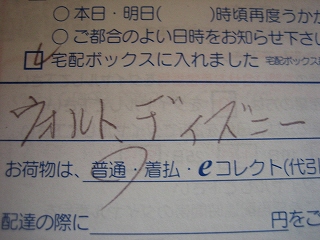 ○本日・明日(　　　)時頃再度うか
○ご都合のよい日時をお知らせ下さい
宅配ボックスに入れました 宅配ボックス
ウォルトディズニー
お荷物は、普通・着払・eコレクト(代引
配達の際に　　　　　円をご